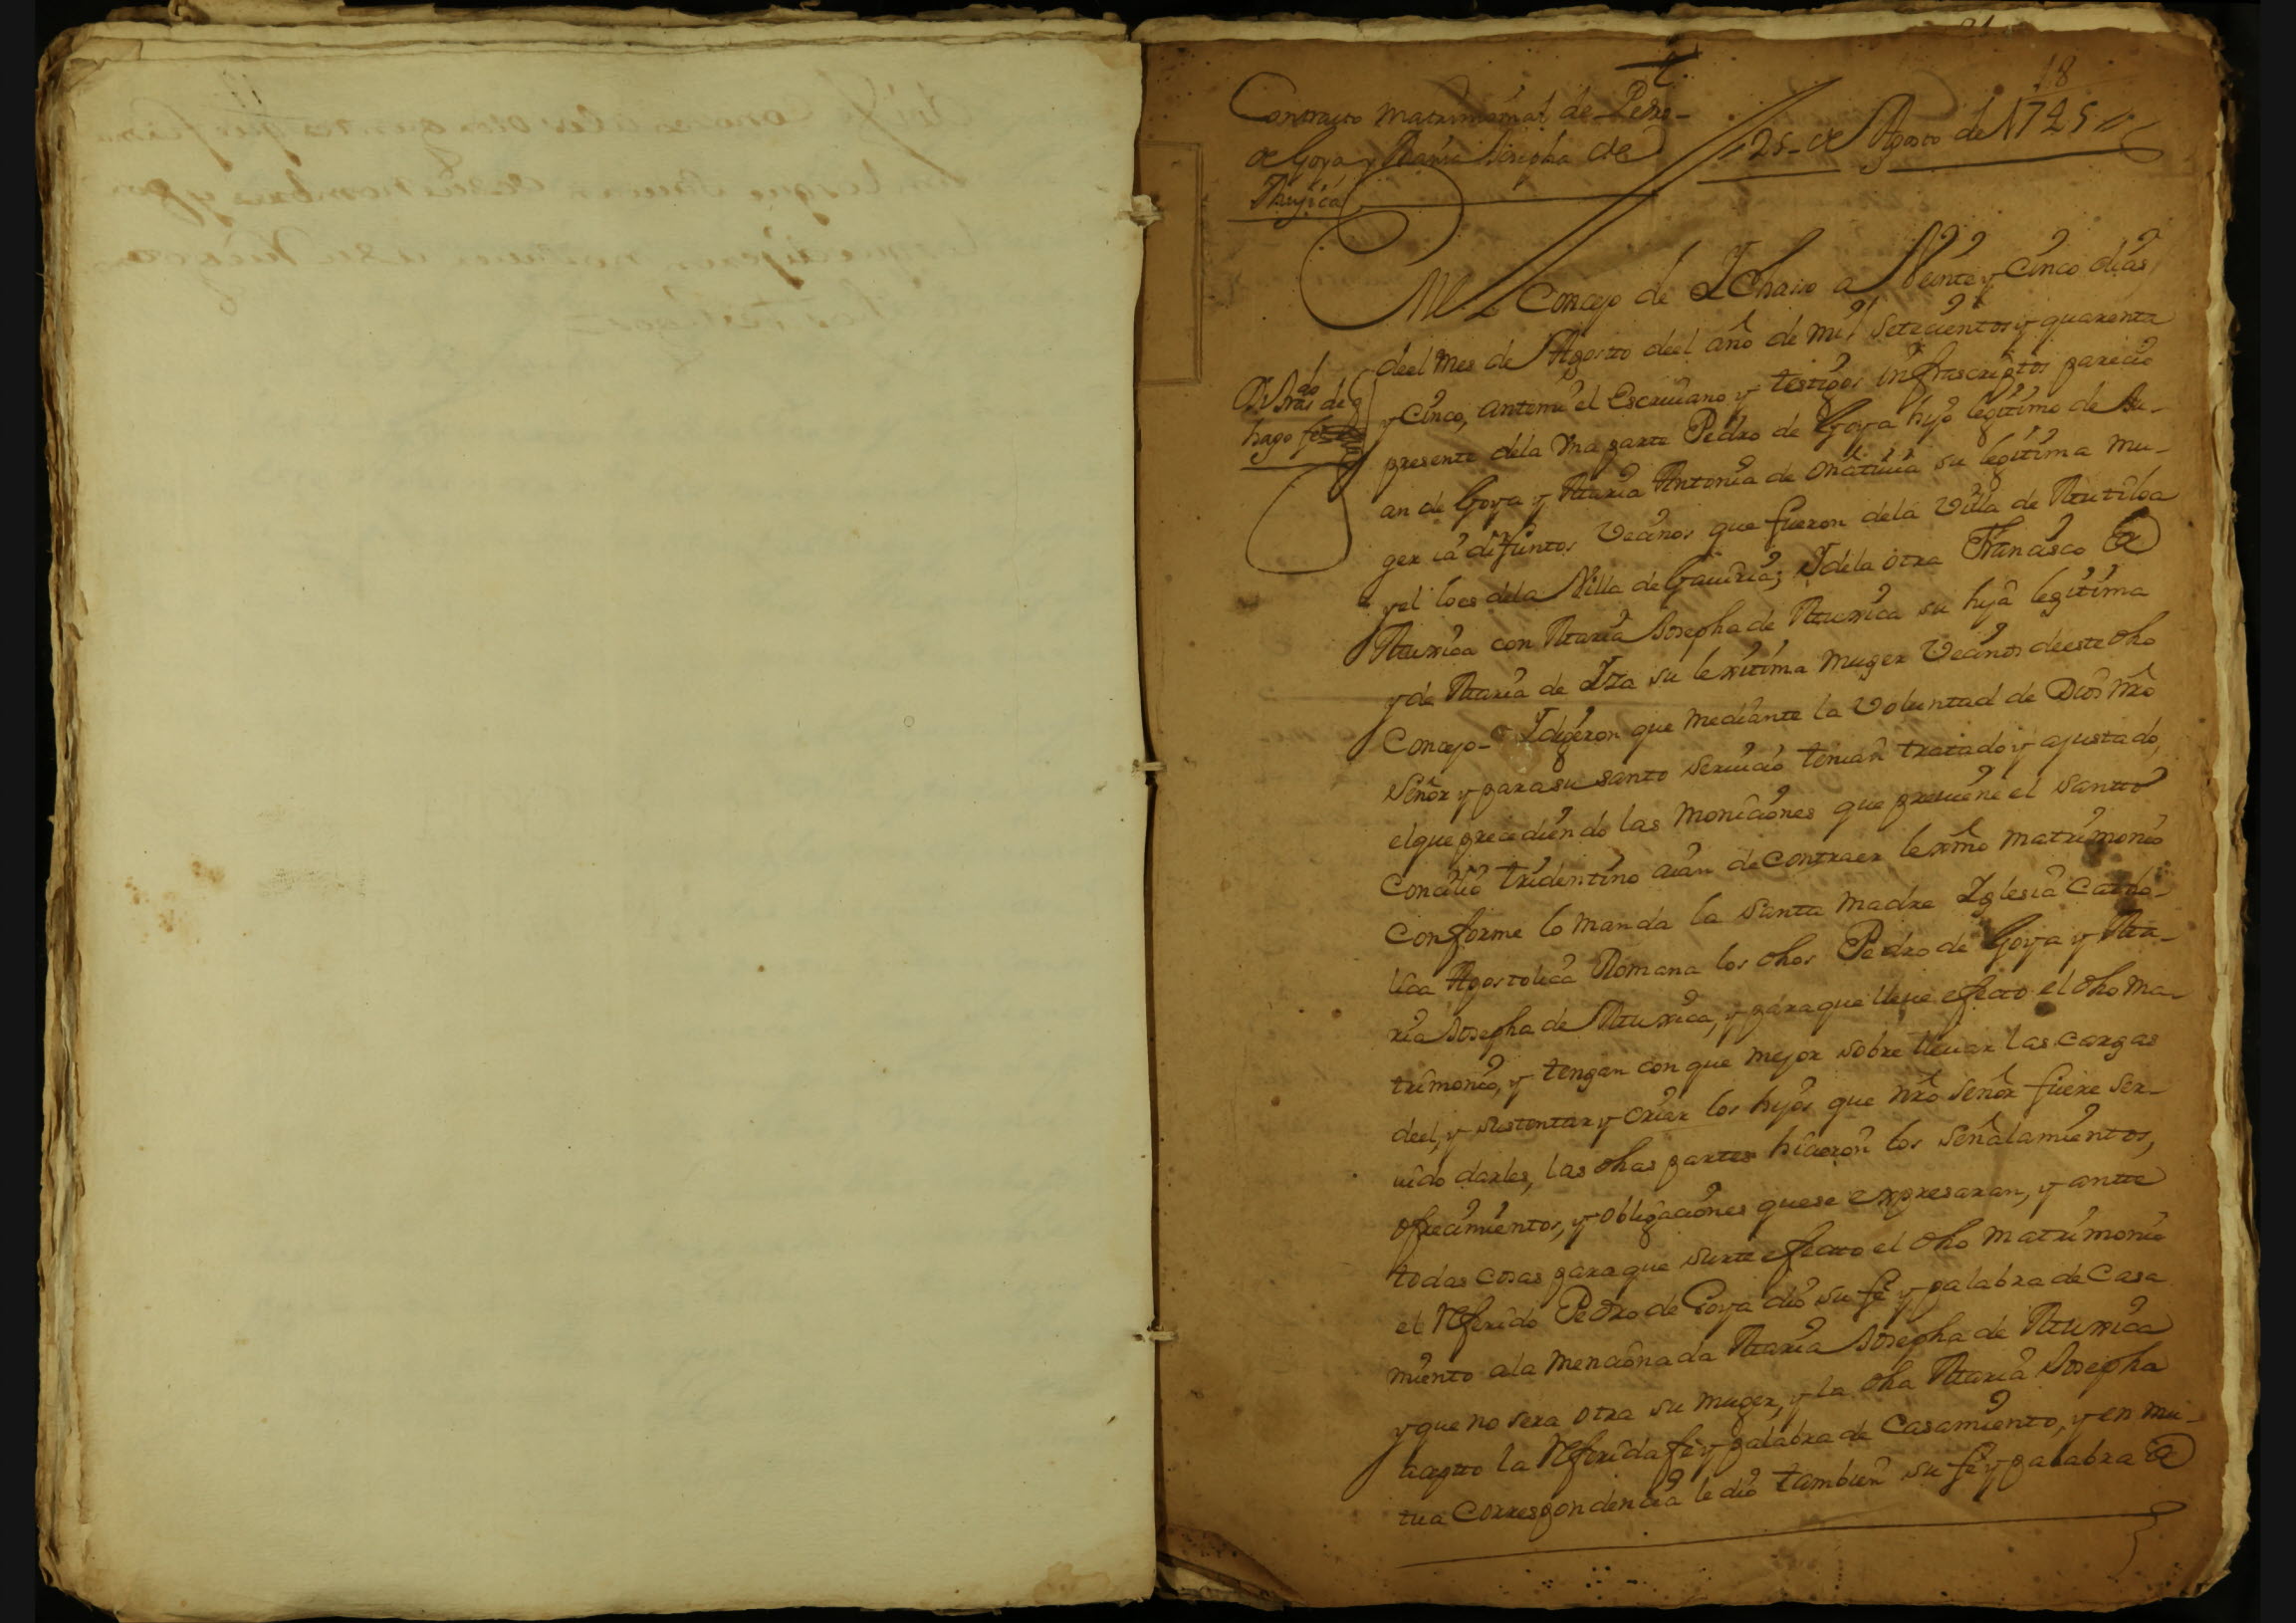 18
Contrato matrimonial de Pedro
de Goya y Maria Josepha de
Mujica
25 de Agosto de 1745
En el Concejo de Ichaso a Veinte y Cinco dias
deel mes de Agosto deel año de mil setecientos y quarenta
y Cinco, antemi el Escriuano y testigos infrascriptos parecio
presente dela Vna parte Pedro de Goya hijo legitimo de Ju-
an de Goya y Maria Antonia de Oñatiuia su legitima mu-
ger ia difuntos Vecinos que fueron dela Villa de Mutiloa
y el lo es dela Villa de Gauiria; Y dela otra Francisco de
Muxica con Maria Josepha de Muxica su hija legitima
y de Maria de Iza su lexitima muger Vecinos deeste dho
Concejo - Y digeron que mediante la Voluntad de Dios nro
Señor y para su santo seruicio tenian tratado y ajustado,
el que precediendo las moniciones que preuiene el santto
Concilio tridentino aian de Contraer lexmo matrimonio
Conforme lo manda la santa madre Iglesia Catho-
lica Apostolica Romana los dhos Pedro de Goya y Ma-
ria Josepha de Muxica, y para que lleue efecto el dho ma-
trimonio, y tengan con que mejor sobre lleuar las cargas
deel, y sustentar y Criar los hijos que nro señor fuere ser-
uido darles, las dhas partes hicieron los señalamientos,
ofrecimientos, y obligaciones que se expresaran, y antte
todas cosas para que surte efectto el dho matrimonio
el Referido Pedro de Goya dio su fe y palabra de Casa
miento ala mencionada Maria Josepha de Muxica
y que no sera otra su muger, y la dha Maria Josepha
acepto la Referida fe y palabra de Casamiento, y en mu-
tua Correspondencia le dio tambien su fe y palabra de